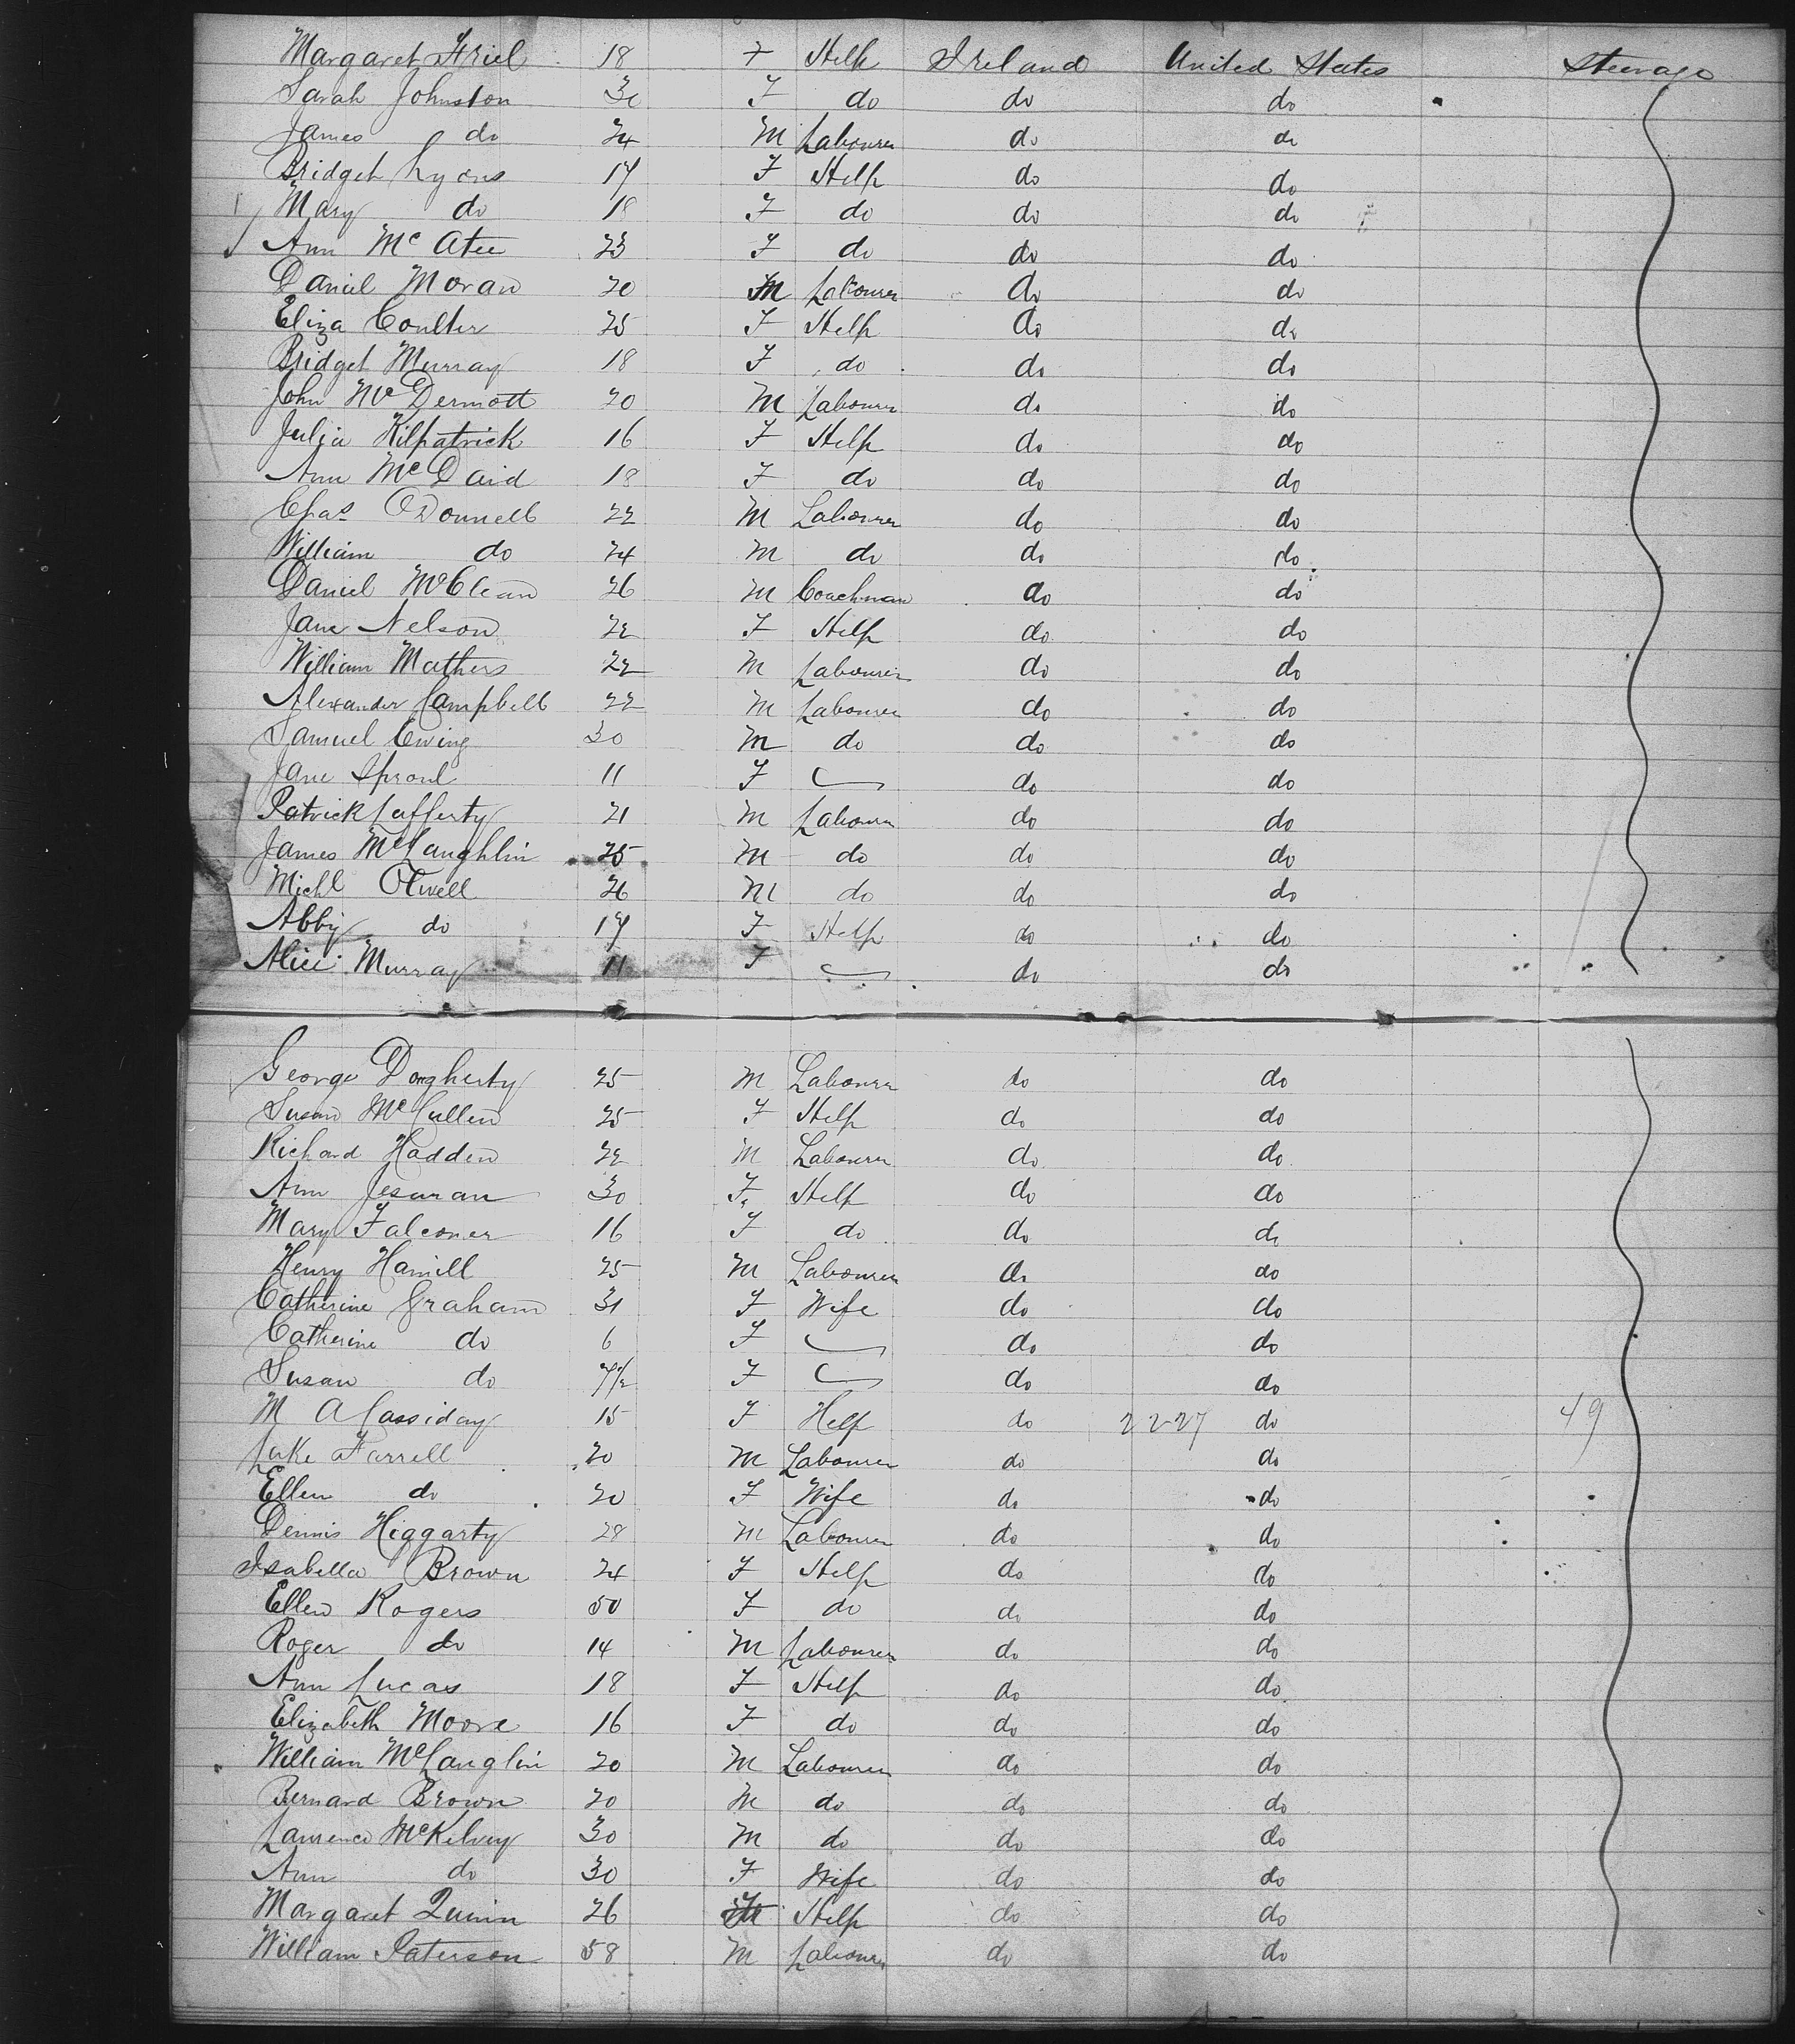 Margaret Friel 18 F Help Ireland United States Steerage
Sarah Johnston 30 F do do do
James do 24 M Labourer do do
Bridget Lyons 17 F Help do do
Mary do 18 F do do do
Ann McAtee 23 F do do do
Daniel Moran 20 M Labourer do do
Eliza Coulter 25 F Help do do
Bridget Murray 18 F do do do
John McDermott 20 M Labourer do do
Julia Kilpatrick 16 F Help do do
Ann McDaid 18 F do do do
Chas ODonnell 22 M Labourer do do
William do 24 M do do do
Daniel McClean 26 M Coachman do do
Jane Nelson 22 F Help do do
William Mathers 22 M Labourer do do
Alexander Campbell 22 M Labourer do do
Samuel Ewing 30 M do do do
Jane Sproul 11 F do do
Patrick Lafferty 21 M Labourer do do
James McLaughlin 25 M do do do
Michl Otwell 26 M do do do
Abby do 17 F Help do do
Alice Murray 11 F do do
George Dougherty 25 M Labourer do do
Susan McCullen 25 F Help do do
Richard Hadden 22 M Labourer do do
Ann 30 F Help do do
Mary Falconer 16 F do do do
Henry Hamill 25 M Labourer do do
Catherine Graham 31 F Wife do do
Catherine do 6 F do do
Susan do F do do
M A Cassiday 15 F Help do 2227 do 49
Luke Farrell 20 M Labourer do do
Ellen do 20 F Wife do do
Dennis Higgarty 28 M Labourer do do
Isabella Brown 24 F Help do do
Ellen Rogers 50 F do do do
Roger do 14 M Labourer do do
Ann Lucas 18 F Help do do
Elizabeth Moore 16 F do do do
William McLauglin 20 M Labourer do do
Bernard Brown 20 M do do do
Laurence McKelvey 30 M do do do
Ann do 30 F Wife do do
Margaret Quinn 26 F Help do do
William Paterson 58 M Labourer do do